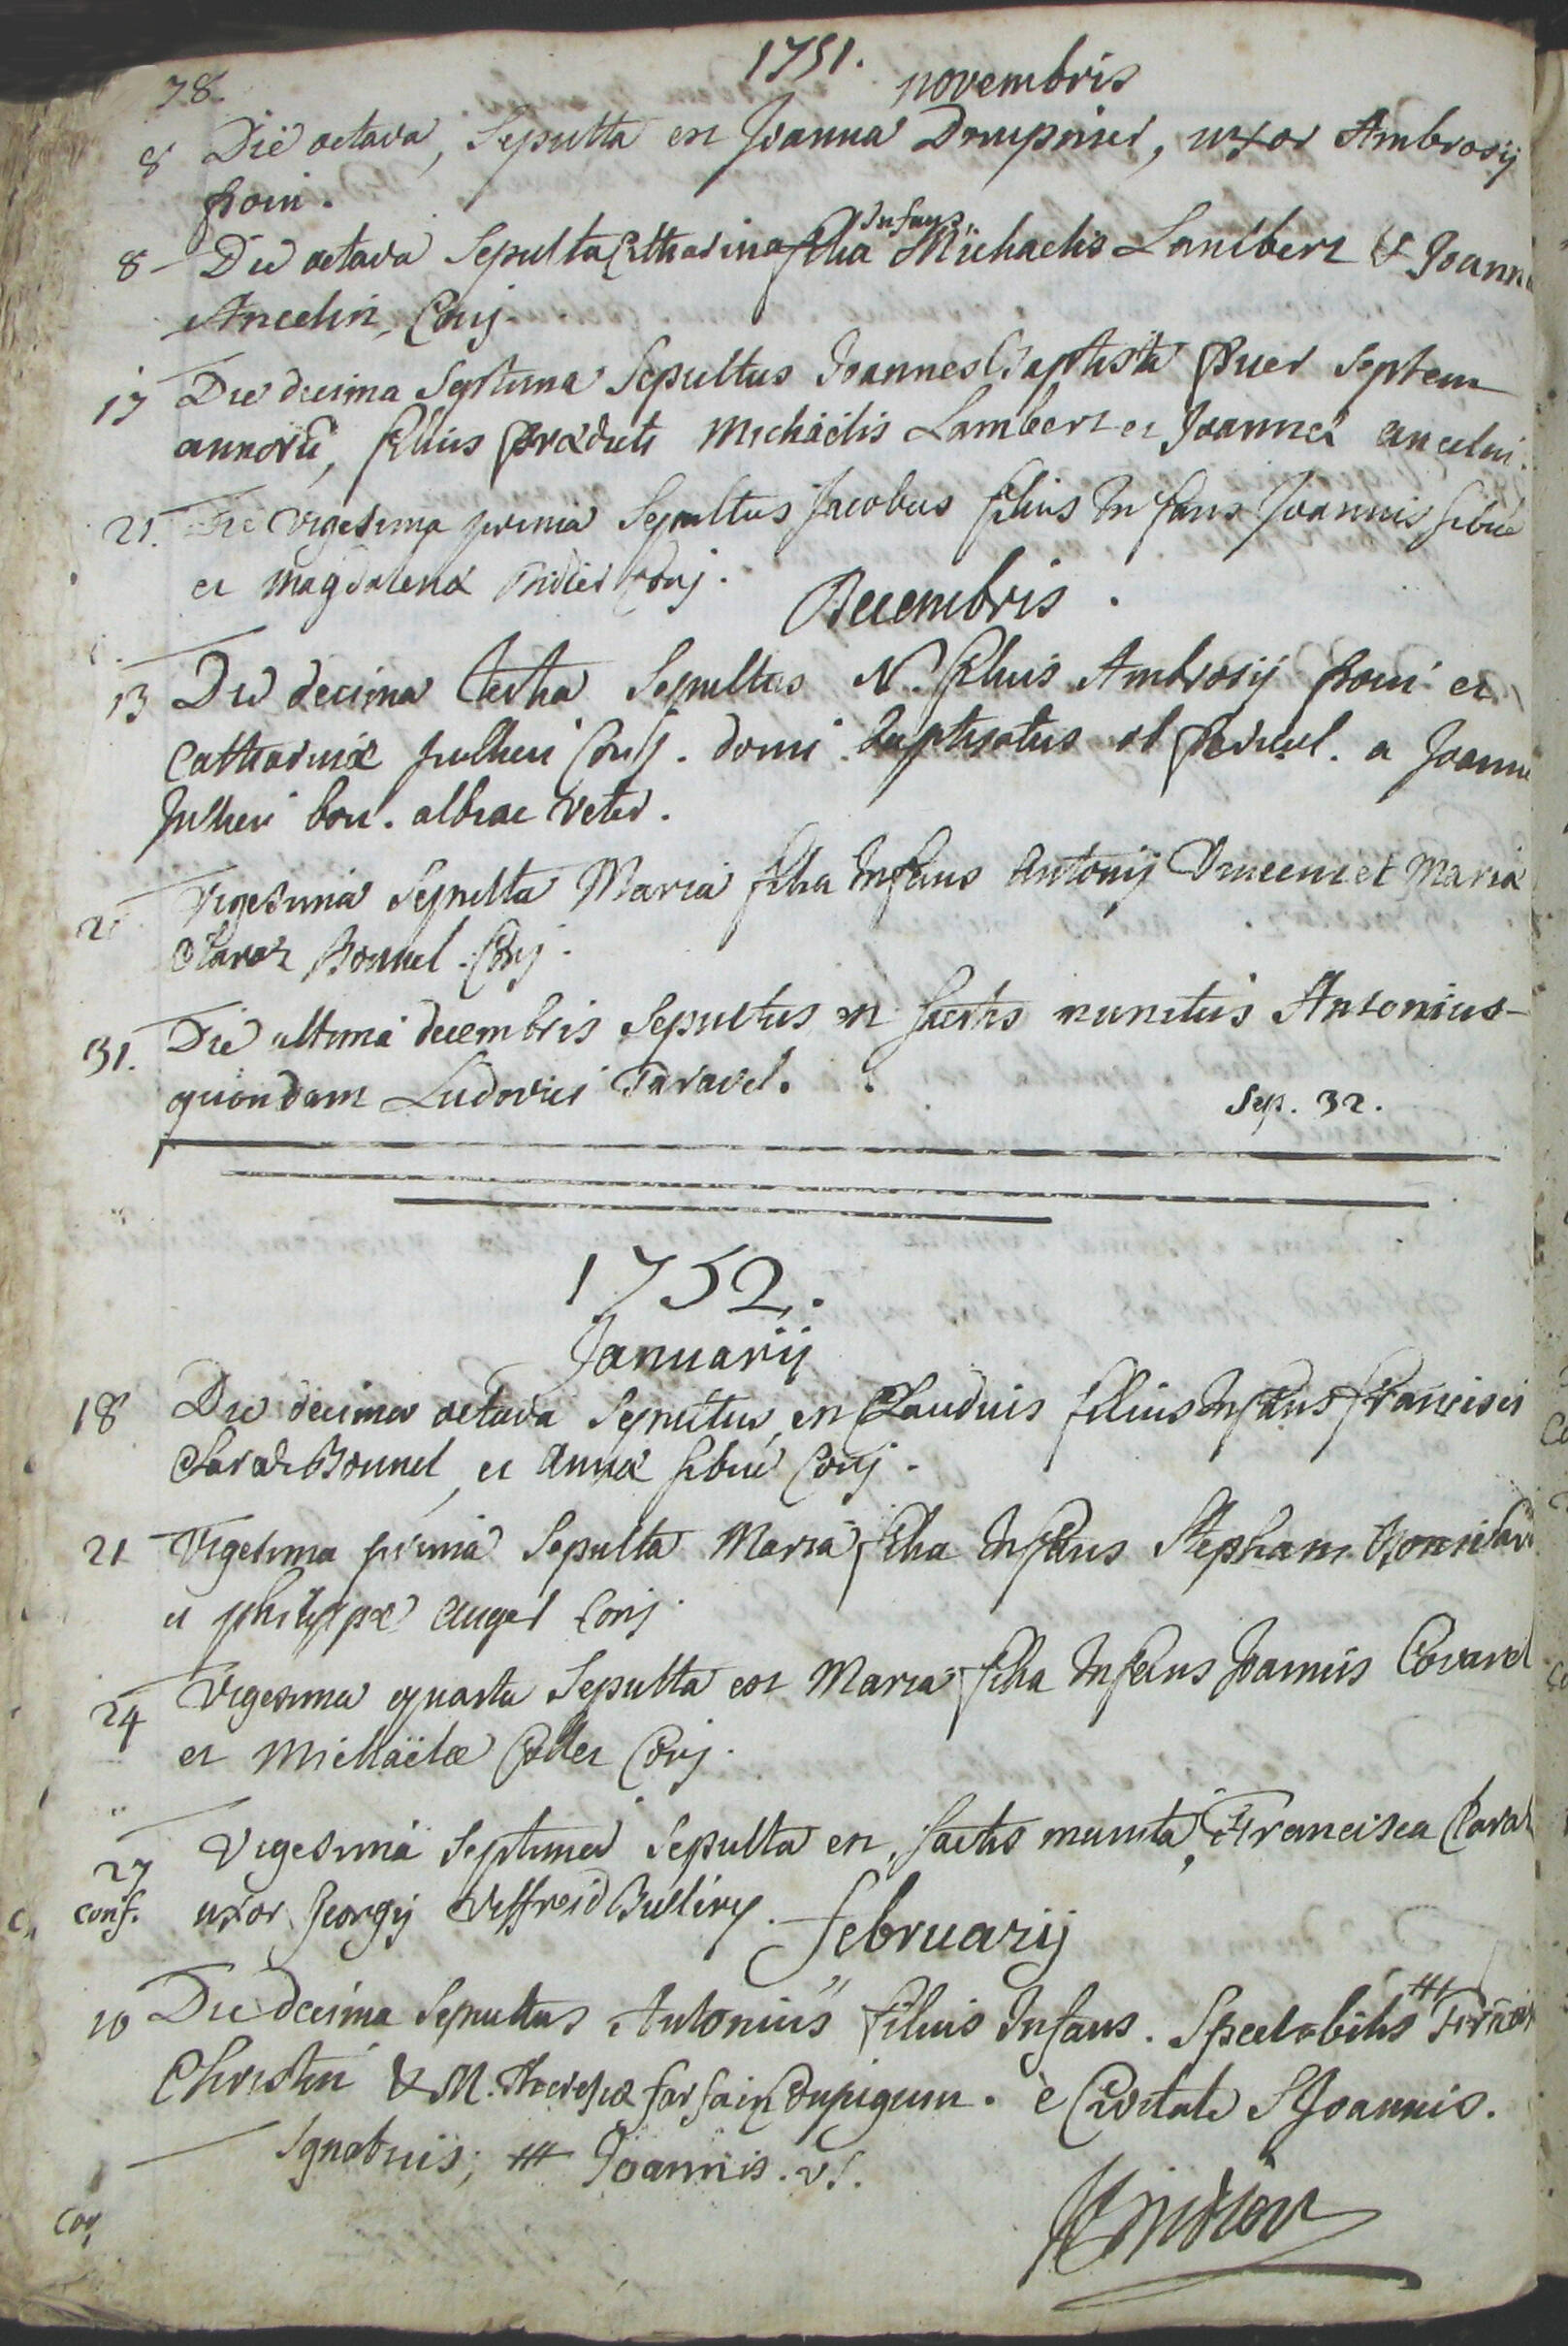 1751.
78. novembris
8 Die octava, Sepulta est Joanna Drupnier, uxor Ambrosij
Froin.
8 Die octava Sepulta Catharina filia Infans Michaelis Lambert & Joannæ
Ancelin, Conj.
17 Die decima Septima Sepultus Joannes Baptista Puer Septem
annorū, filius Prædicti Michaëlis Lambert et Joannæ ancelin.
21. Die Vigesima prima Sepultus Jacobus filius Infans Joannis Sibué
et Magdalenæ Didier Conj.
Decembris.
13 Die decima tertia Sepultus N. filius Ambrosij Froin et
Catharinæ Julheri Conj. domi baptisatus ob Pericul. a Joanne
Julheri veter.
Vigesima Sepulta Maria filia Infans Antonij Vincent et Maria
Clarat Bonnel. Conj.
31. Die ultima decembris Sepultus est Sactis munitus Antonius
quondam Ludovici Taravel.
Sep. 32.
1752.
Januarij
18 Die decima octava Sepultus est Claudius filius Infans Francisci
Clarat Bonnel, et Annæ Sibué Conj.
21 Vigesima prima Sepulta Maria filia Infans Stephani
et philippæ Auger Conj.
24 Vigesima quarta Sepulta est Maria filia Infans Joannis Covarel
et Michaëlæ Collet Conj.
27 Vigesima Septima Sepulta est, Sactis munita, Francisca Clarat
conf. uxor Georgij Bulliny.
Februarij
10 Die decima Sepultus Antonius filius Infans. Spectabilis
Christin & M. Theresiæ è Civitate S Joannis.
Ignatius; Joannis.